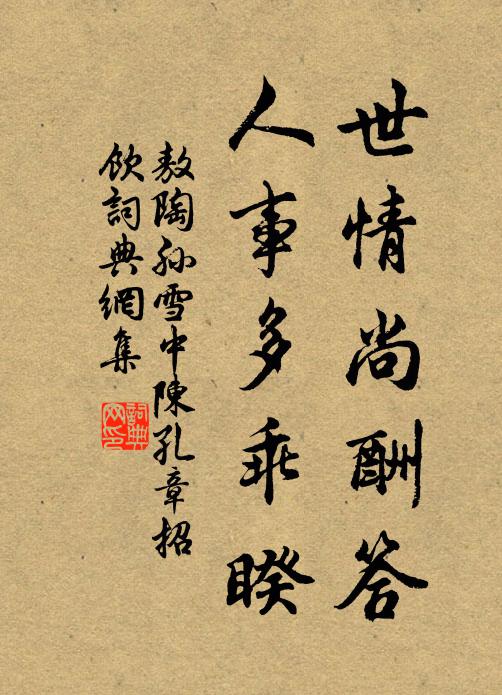 世情尚酬答
人事多乖睽
敖陶孙雪中陳孔章招
飲詞典網集
詞典
网印